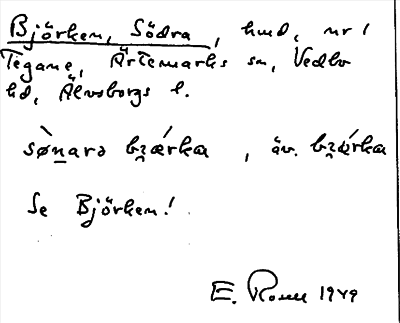 Björken, Södra, hmd, nr 1
Tegane, Ärtemarks sn, Vedbo
hd, Älvsborgs l.
sø̀narə bzǽrka, äv. bzǽrka
Se Björken!
E. Rosell 1949